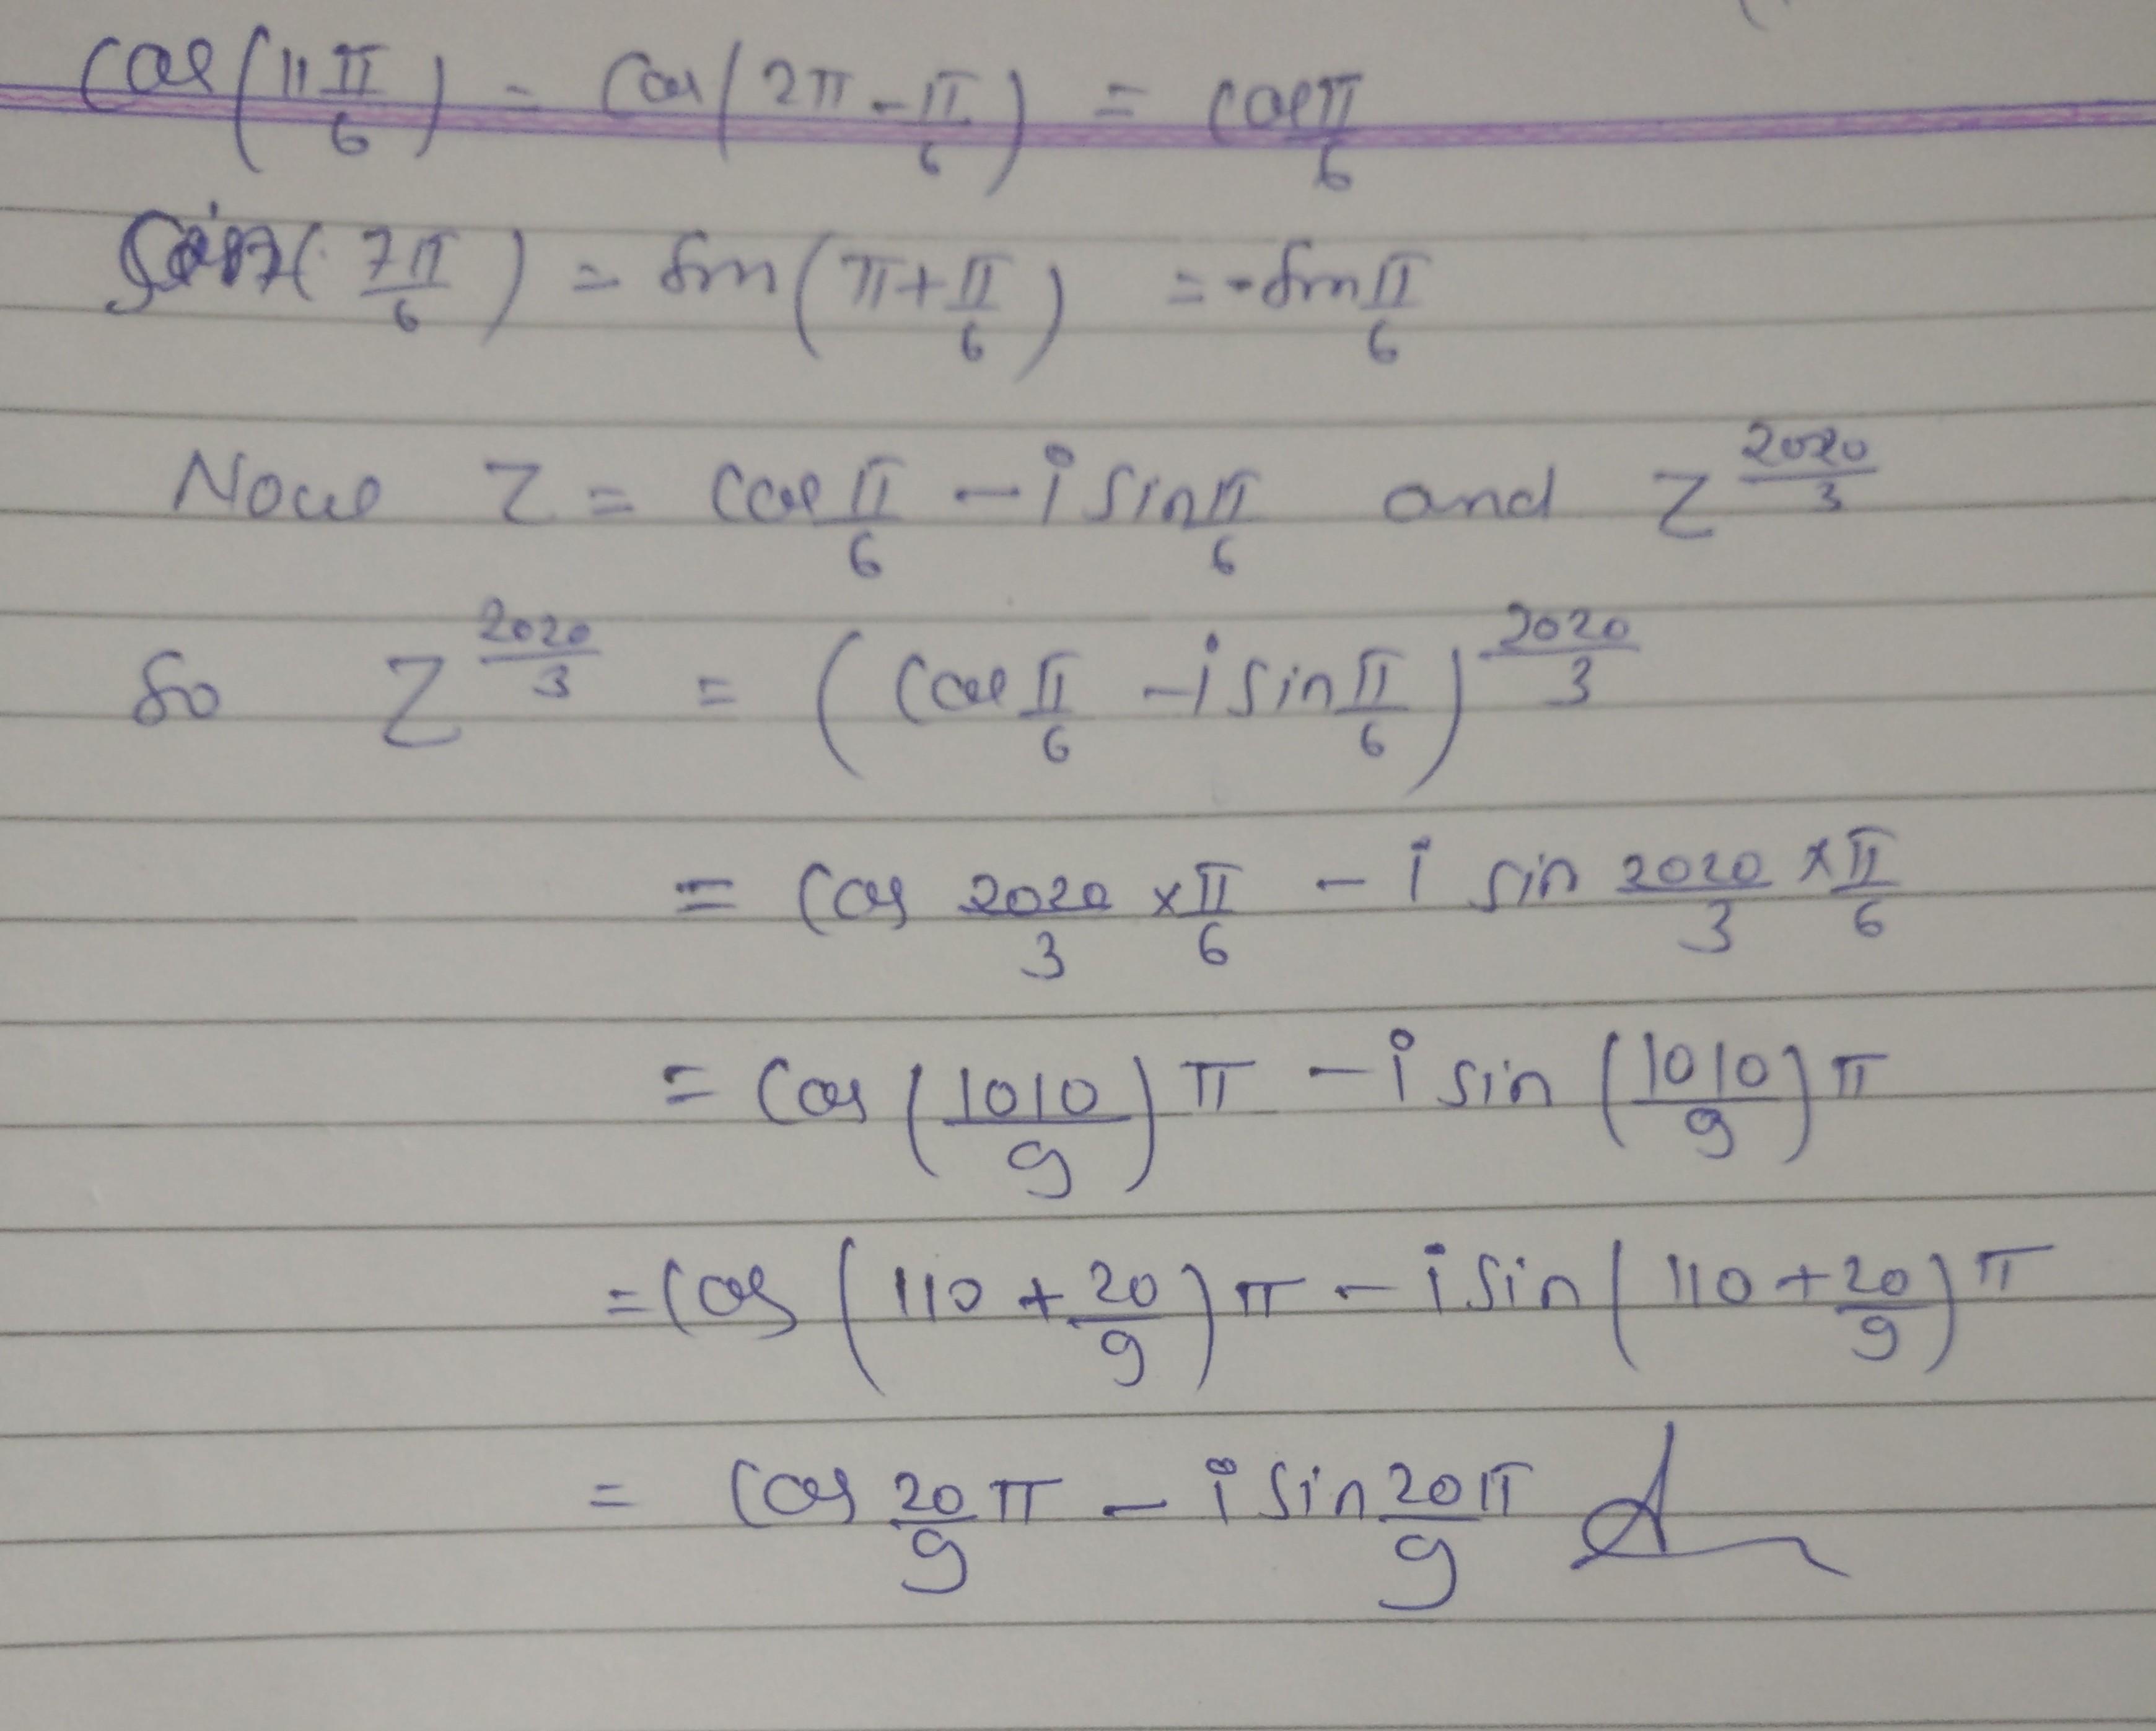 cos(11π/6) = cos(2π - π/6) = cos π/6
sin(7π/6) = sin(π + π/6) = -sin π/6
Now Z = cos π/6 - i sin π/6 and Z^(2020/3)
So Z^(2020/3) = (cos π/6 - i sin π/6)^(2020/3)
= cos 2020/3 × π/6 - i sin 2020/3 × π/6
= cos (1010/9) π - i sin (1010/9) π
= cos (110 + 20/9) π - i sin (110 + 20/9) π
= cos 20/9 π - i sin 20π/9